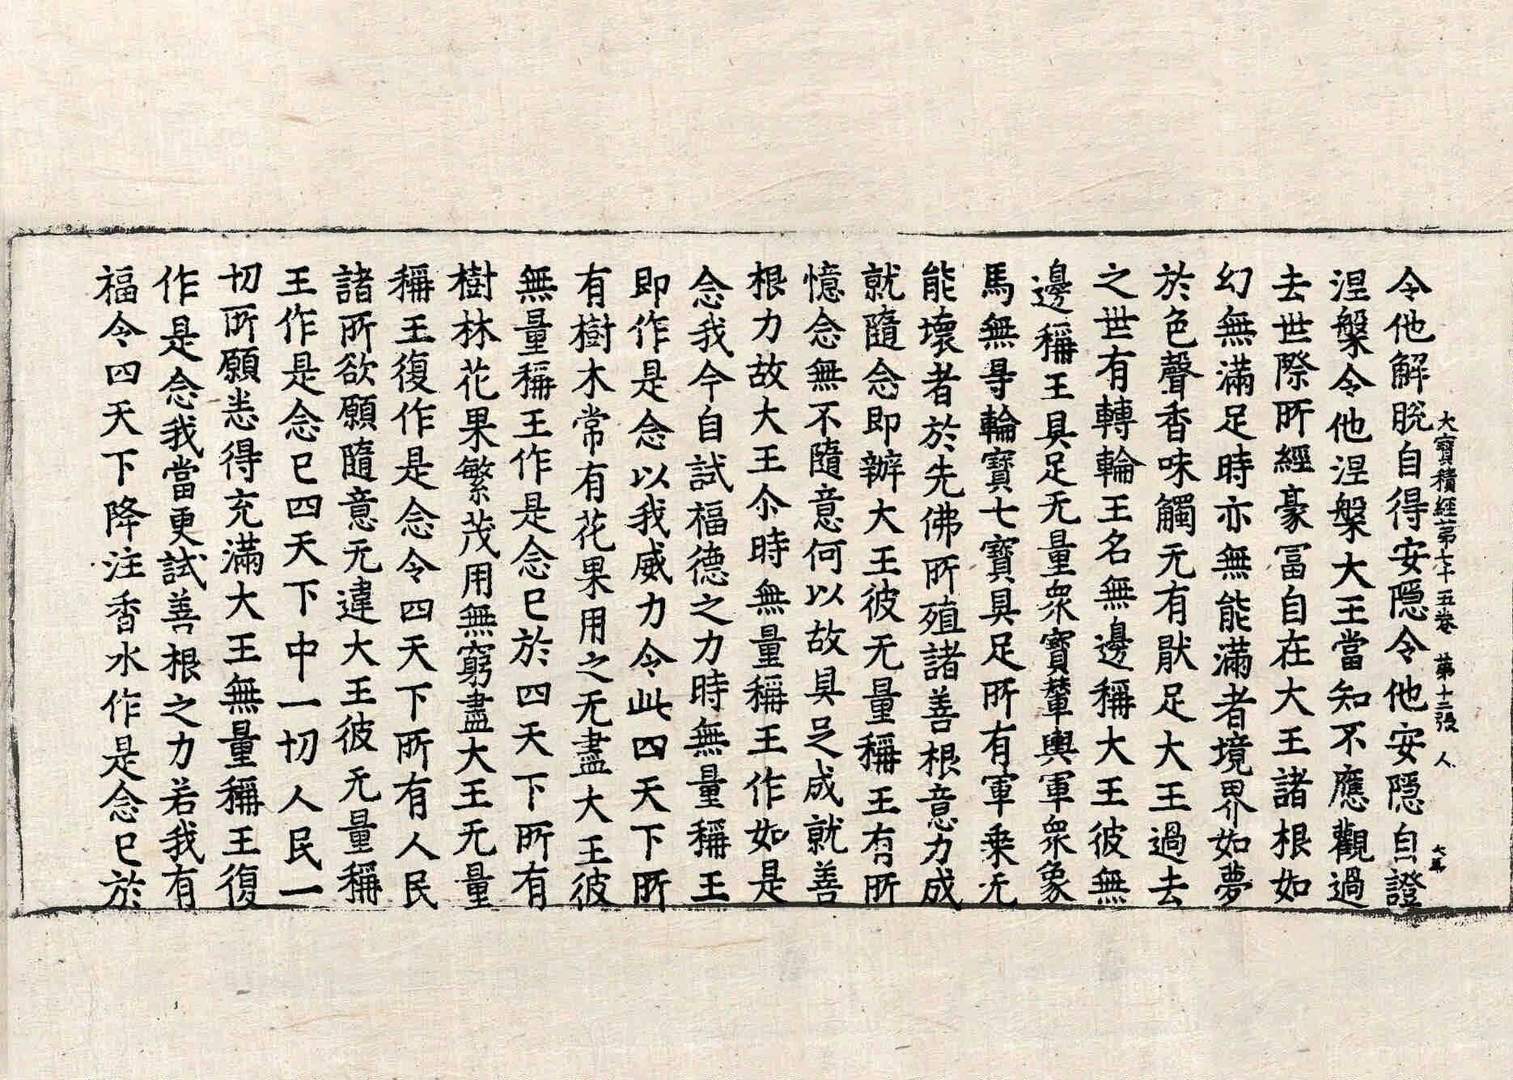 大寶積經第七十五卷 第十二張 人
令他解脫自得安隱令他安隱自證
涅槃令他涅槃大王當知不應觀過
去世際所經豪冨自在大王諸根如
幻無滿足時亦無能滿者境界如夢
於色聲香味觸无有猒足大王過去
之世有轉輪王名無邊稱大王彼無
邊稱王具足无量眾寶輦輿軍眾象
馬無㝵輪寶七寶具足所有軍乗无
能壞者於先佛所殖諸善根意力成
就隨念即辦大王彼无量稱王有所
憶念無不隨意何以故具足成就善
根力故大王尒時無量稱王作如是
念我今自試福德之力時無量稱王
即作是念以我威力令此四天下所
有樹木常有花果用之无盡大王彼
無量稱王作是念已於四天下所有
樹林花果繁茂用無窮盡大王无量
稱王復作是念令四天下所有人民
諸所欲願隨意无違大王彼无量稱
王作是念已四天下中一切人民一
切所願悉得充滿大王無量稱王復
作是念我當更試善根之力若我有
福令四天下降注香水作是念已於